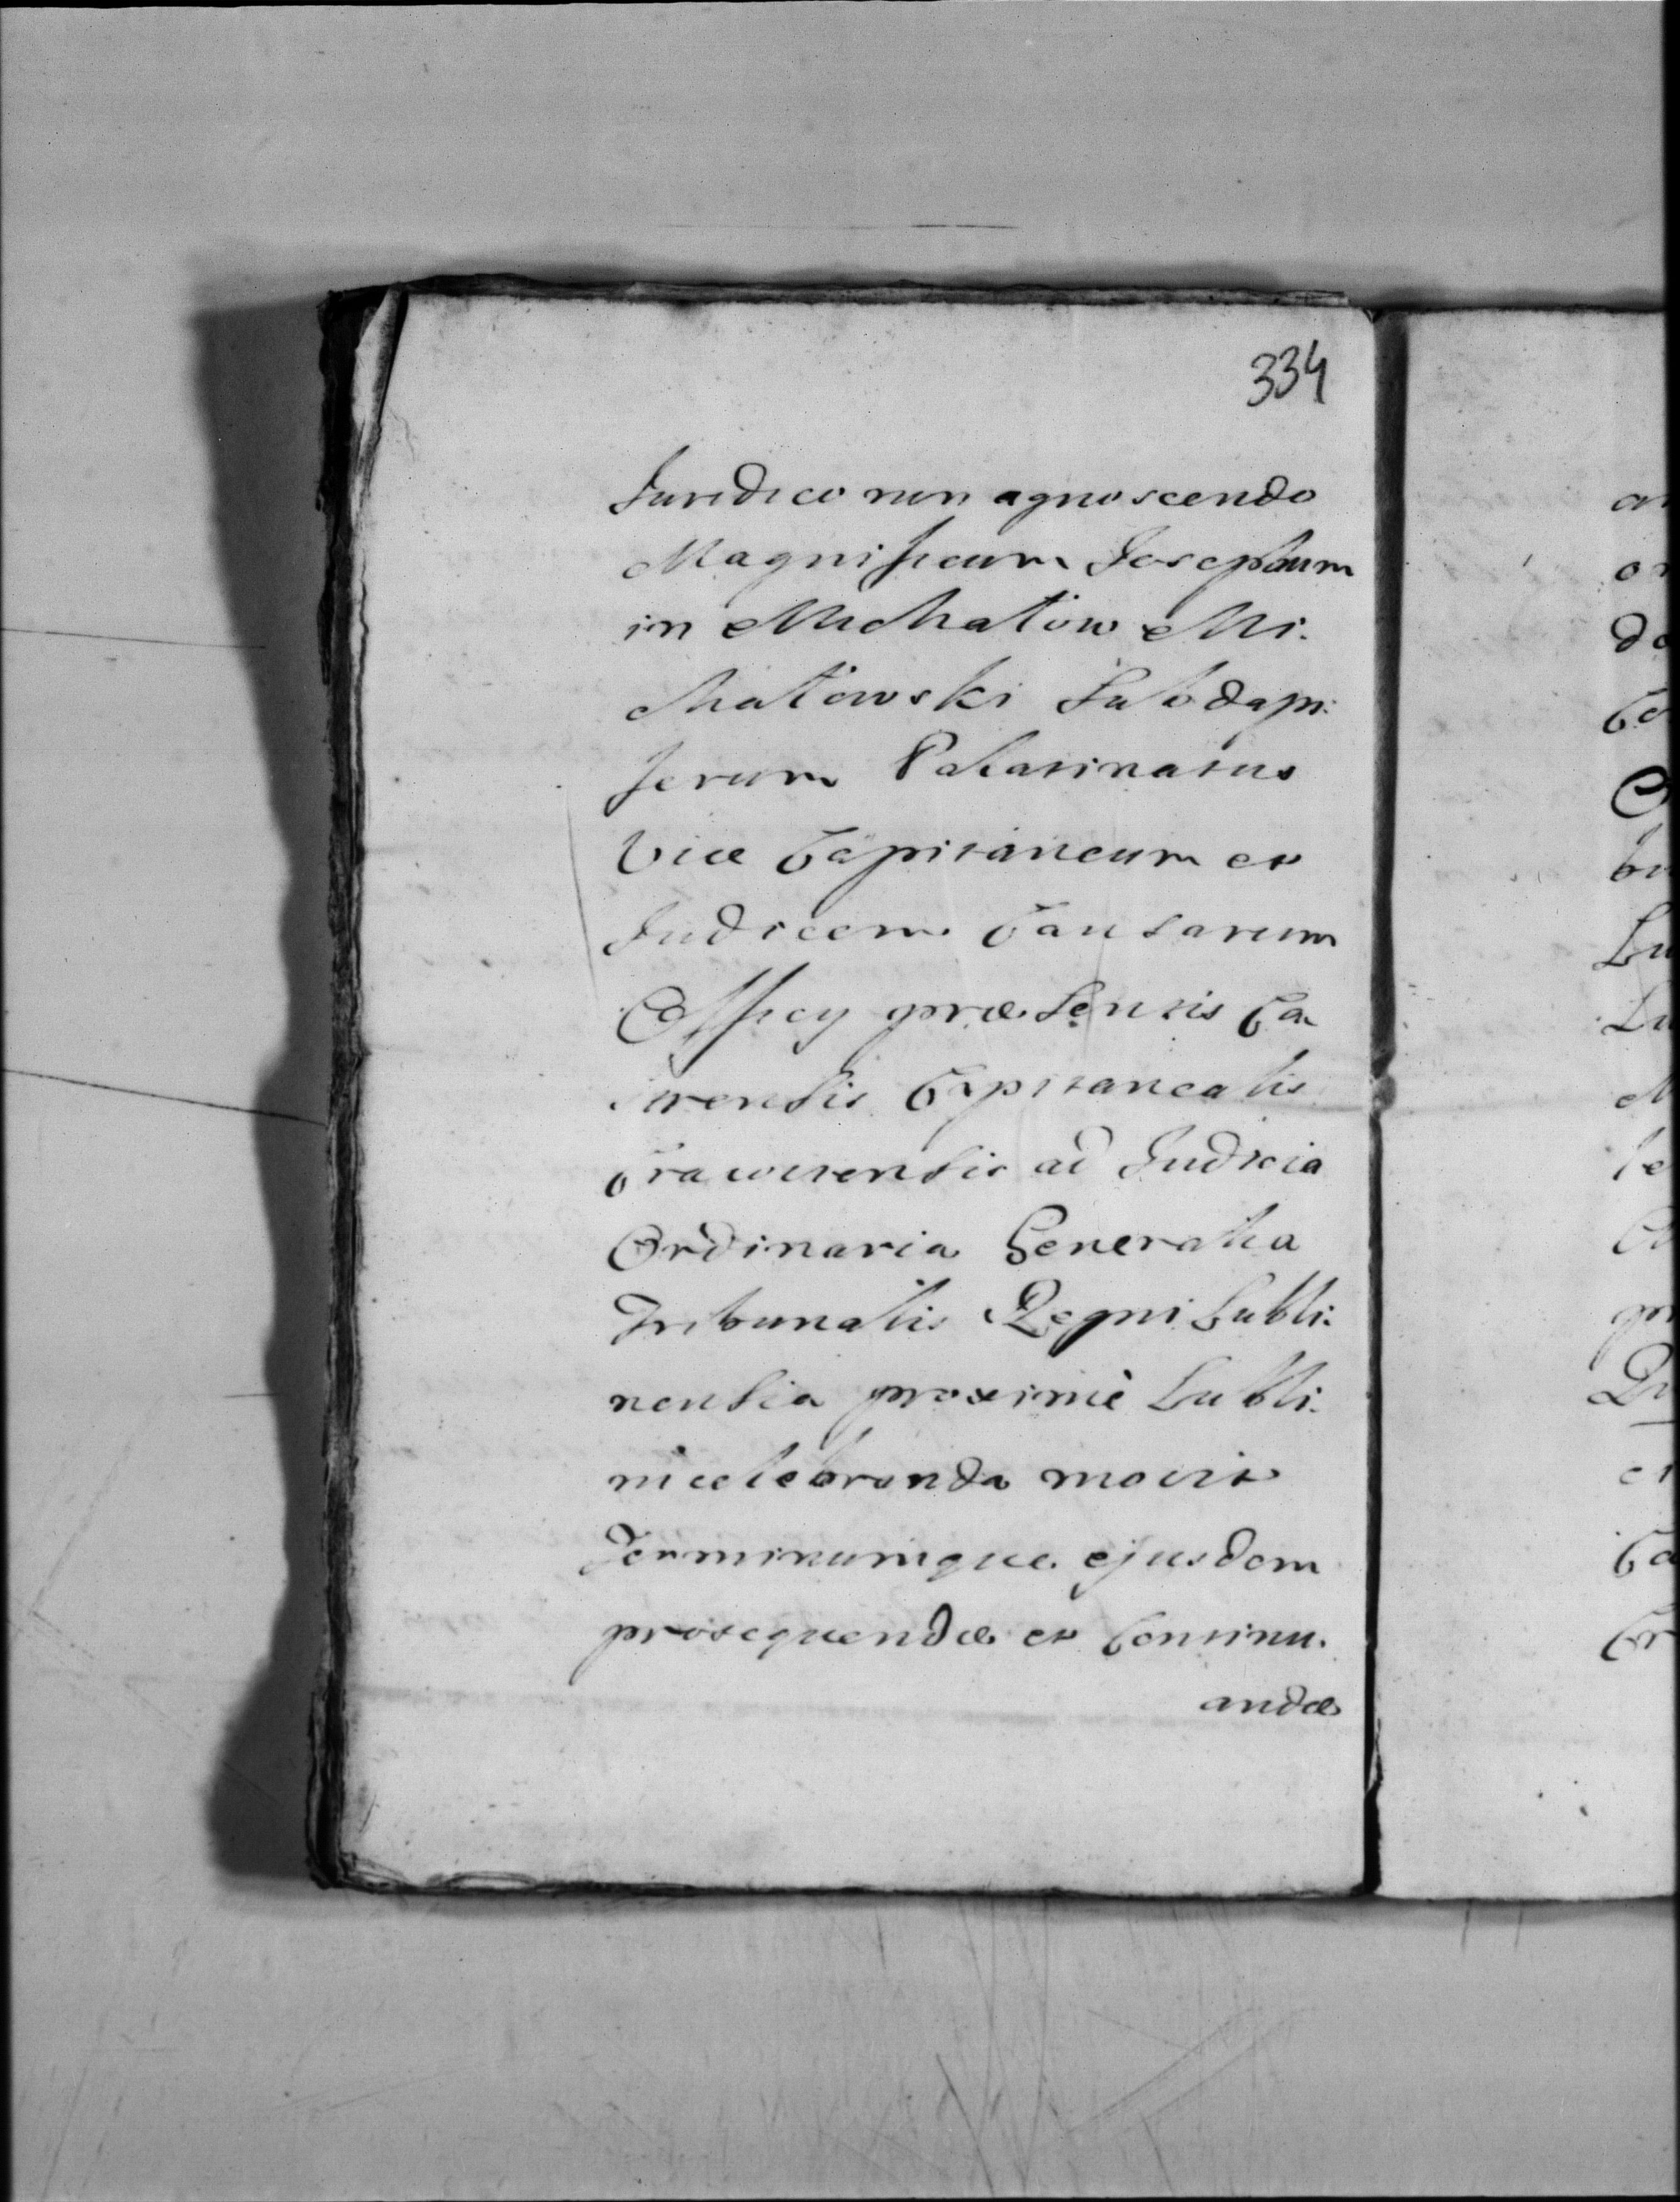 334
Juridico non agnoscendo
Magnificum Josephum
in Michałow Mi:
chałowski Subdapi:
ferum Palatinatus
Vice Capitaneum et
Judicem Causarum
Officy præsentis Ca
strensis Capitanealis
Cracoviensis ad Judicia
Ordinaria Generalia
Tribunalis Regni Lubli:
nensia proximè Lubli:
ni celebranda movit
Terminumque ejusdem
prosequendæ et Continu:
andæ